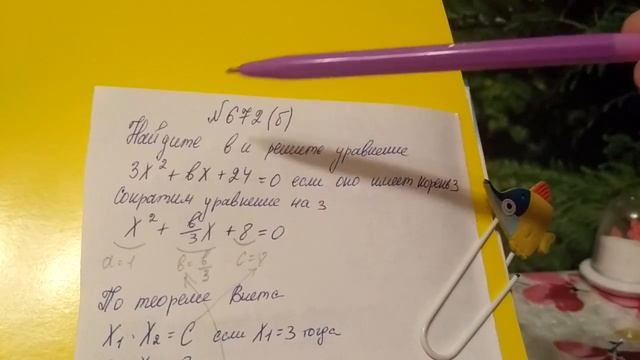 №672(б)
Найдите в и решите уравнение
3x² + вx + 24 = 0 если оно имеет корень 3
Сократим уравнение на 3
x² + в/3 x + 8 = 0
a=1 в=в/3 c=8
По теореме Виета
x₁ · x₂ = C если x₁ = 3 тогда